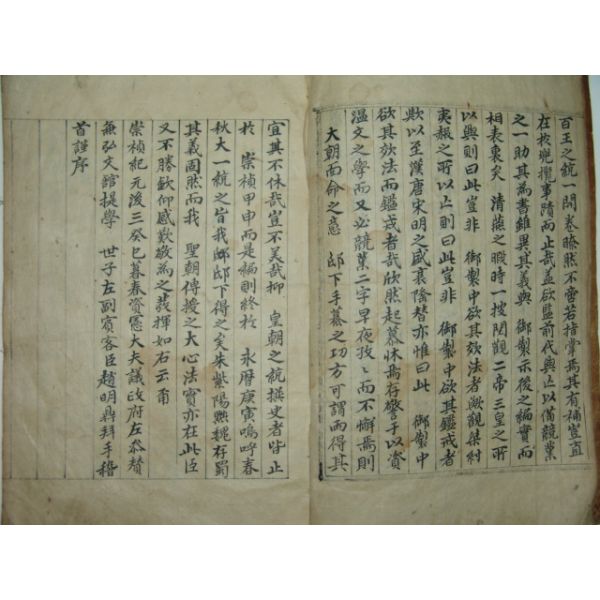 百王之統一開卷瞭然不啻若指掌焉其有補豈直
在於兜攬事蹟而止哉盖欲監前代興亡以備競業
之一助其為書雖異其義與 御製示後之編實而
相表裏矣 清燕之暇時一披閱觀二帝三皇之所
以興則曰此豈非 御製中欲其效法者歟觀桀紂
夷赧之所以亡則曰此豈非 御製中欲其鑑戒者
歟以至漢唐宋明之盛衰隆替亦惟曰此 御製中
欲其效法而鑑戒者哉欣然起慕怵焉存警于以資
溫文之學而又必競業二字早夜孜〻而不懈焉則
大朝面命之意 邸下手纂之功方可謂而得其
宜其不休哉豈不美哉抑 皇朝之統撰史者皆止
於 崇禎甲申而是編則終於 永曆庚寅嗚呼春
秋大一統之旨我 邸邸下得之矣朱紫陽黜魏存蜀
其義固然而我 聖朝傳授之大心法實亦在此臣
又不勝欽仰感歎敬為之發揮如右云甭
崇禎紀元後三癸巳暮春資憲大夫議政府左叅贊
兼弘文館提學 世子左副賓客臣趙明鼎拜手稽
首謹序